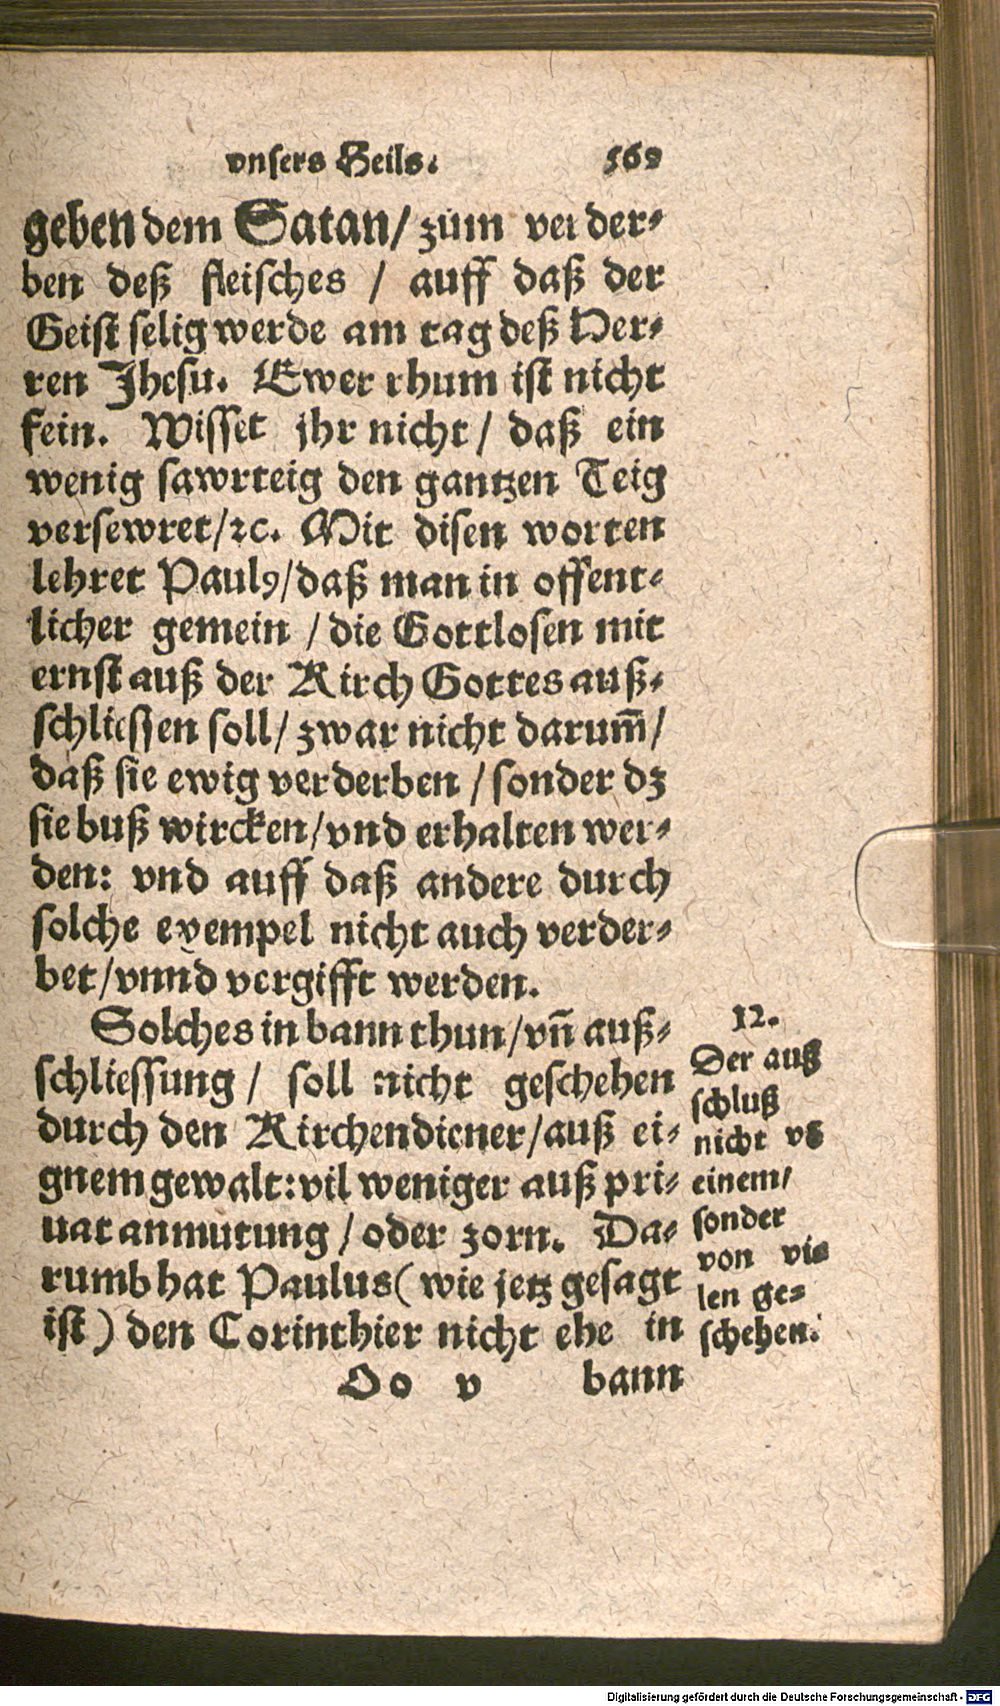 vnsers Heils.
569
geben dem Satan/ zum verder-
ben deß fleisches / auff daß der
Geist selig werde am tag deß Her-
ren Jhesu. Ewer rhum ist nicht
fein. Wisset jhr nicht/ daß ein
wenig sawrteig den gantzen Teig
versewret/ꝛc. Mit disen worten
lehret Paulꝰ/daß man in offent-
licher gemein / die Gottlosen mit
ernst auß der Kirch Gottes auß-
schliessen soll/ zwar nicht darum̄/
daß sie ewig verderben / sonder dz
sie buß wircken/vnd erhalten wer-
den: vnd auff daß andere durch
solche exempel nicht auch verder-
bet/vnnd vergifft werden.
Solches in bann thun/vn̄ auß-
schliessung/ soll nicht geschehen
durch den Kirchendiener/auß ei-
gnem gewalt:vil weniger auß pri-
uat anmutung / oder zorn. Da-
rumb hat Paulus(wie jetz gesagt
ist) den Corinthier nicht ehe in
Oo v bann
12.
Der auß
schluß
nicht vō
einem/
sonder
von vie-
len ge-
schehen.
Digitalisierung gefördert durch die Deutsche Forschungsgemeinschaft - DFG